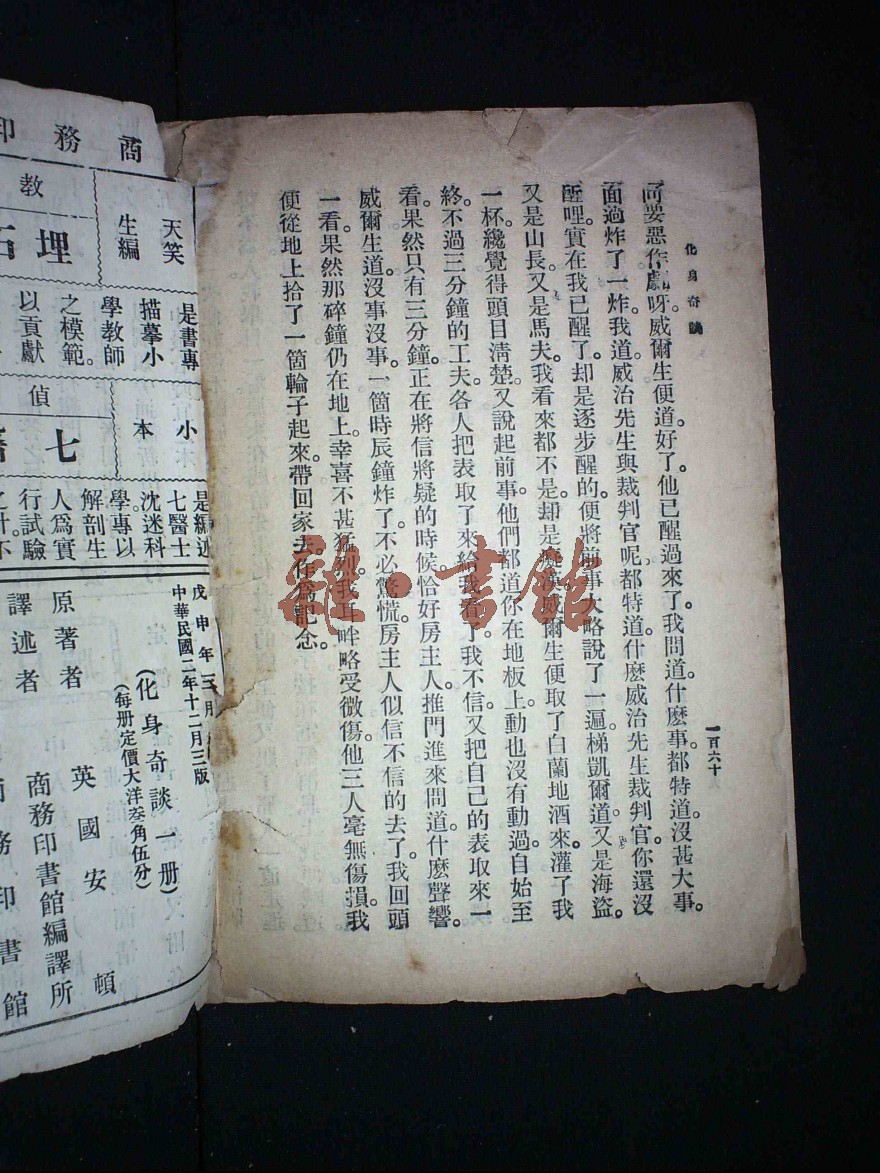 化身奇談
一百六十
尚要惡作劇呀威爾生便道好了。他已醒過來了。我問道什麼事都特道。沒甚大事。
面過炸了一炸。我道威治先生與裁判官呢都特道什麼威治先生裁判官你還沒
醒哩。實在我已醒了。却是逐步醒的。便將前事大略說了一遍梯凱爾道又是海盜。
又是山長又是馬夫。我看來都不是。却是癡漢威爾生便取了白蘭地酒來灌了我
一杯纔覺得頭目淸楚。又說起前事。他們都道你在地板上。動也沒有動過。自始至
終。不過三分鐘的工夫各人把表取了來給我看了。我不信又把自己的表取來一
看果然只有三分鐘。正在將信將疑的時候恰好房主人推門進來問道什麼聲響。
威爾生道沒事沒事。一箇時辰鐘炸了。不必驚慌。房主人似信不信的去了。我回頭
一看。果然那碎鐘仍在地上。幸喜不甚猛烈。我耳畔略受微傷。他三人毫無傷損。我
便從地上拾了一箇輪子起來。帶回家去。作爲記念。
雜·書館
商務印
教
天笑
生編
埋石
是書專
描摹小
學教師
之模範。
以貢獻
偵
小
本
七醫
是編述
七醫士
沈迷科
學。專以
解剖生
人爲實
行試驗
之計。不
戊申年三月
中華民國二年十二月三版
(化身奇談一册)
(每册定價大洋叁角伍分)
原著者 英國安頓
譯述者 商務印書館編譯所
商務印書館